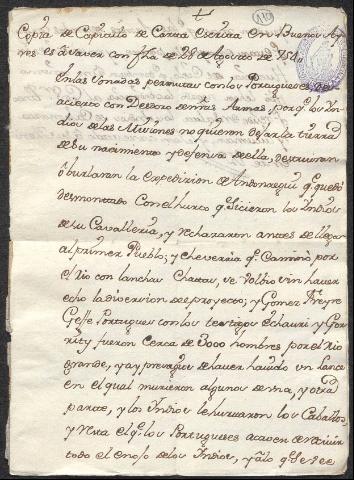 Copia de Capitulo de Carta Escrita en Buenos Ay
res es á saver con fha de 28 de Agosto de 754,,
En las sonadas permutas con los Portugueses
acierto con Desdoro de ntras Armas, porq.e los Yn
dios de las Misiones no quieren dejar la tierra
de su nacimiento y defensa de ella, destruieron
ó burlaron la expedicion de Andonaegui q.e quedó
desmontado Con el hurto q.e hicieron los Yndios
de su Cavalleria, y rechazaron antes de llegar
al primer Pueblo; y Chevereia q.e Caminó por
el rio con lanchas Chattas, se volbio sin haver
echo la diversion de proyecto; y Gomez Freyre
Gefe Portugues con los testigos Echauri y Gar
rity fueron Cerca de 3000 hombres por el rio
grande, y ay presagios de haver havido un lance
en el qual murieron algunos de una, y otra
parte, y los Yndios le hurtaron los Caballos
y resta el q.e los Portugueses acaven de
todo el enojo de los Yndios, q.e se